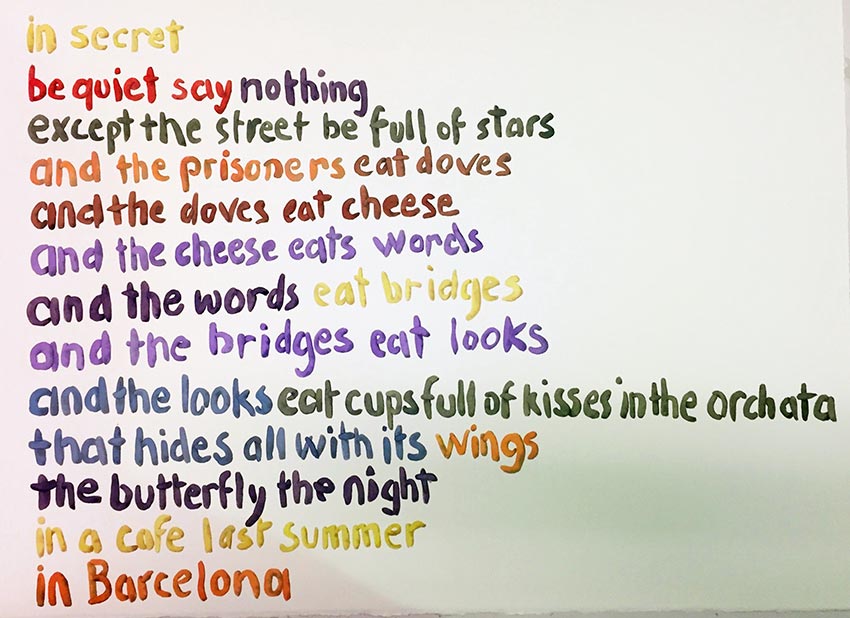 in secret
be quiet say nothing
except the street be full of stars
and the prisoners eat doves
and the doves eat cheese
and the cheese eats words
and the words eat bridges
and the bridges eat looks
and the looks eat cups full of kisses in the orchata
that hides all with its wings
the butterfly the night
in a cafe last summer
in Barcelona